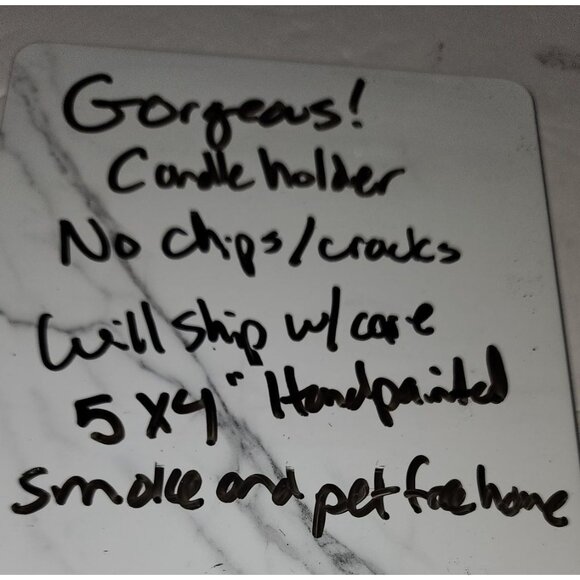 Gorgeous!
Candle holder
No chips/cracks
Will ship w/ care
5 x 4" Handpainted
smoke and pet free home